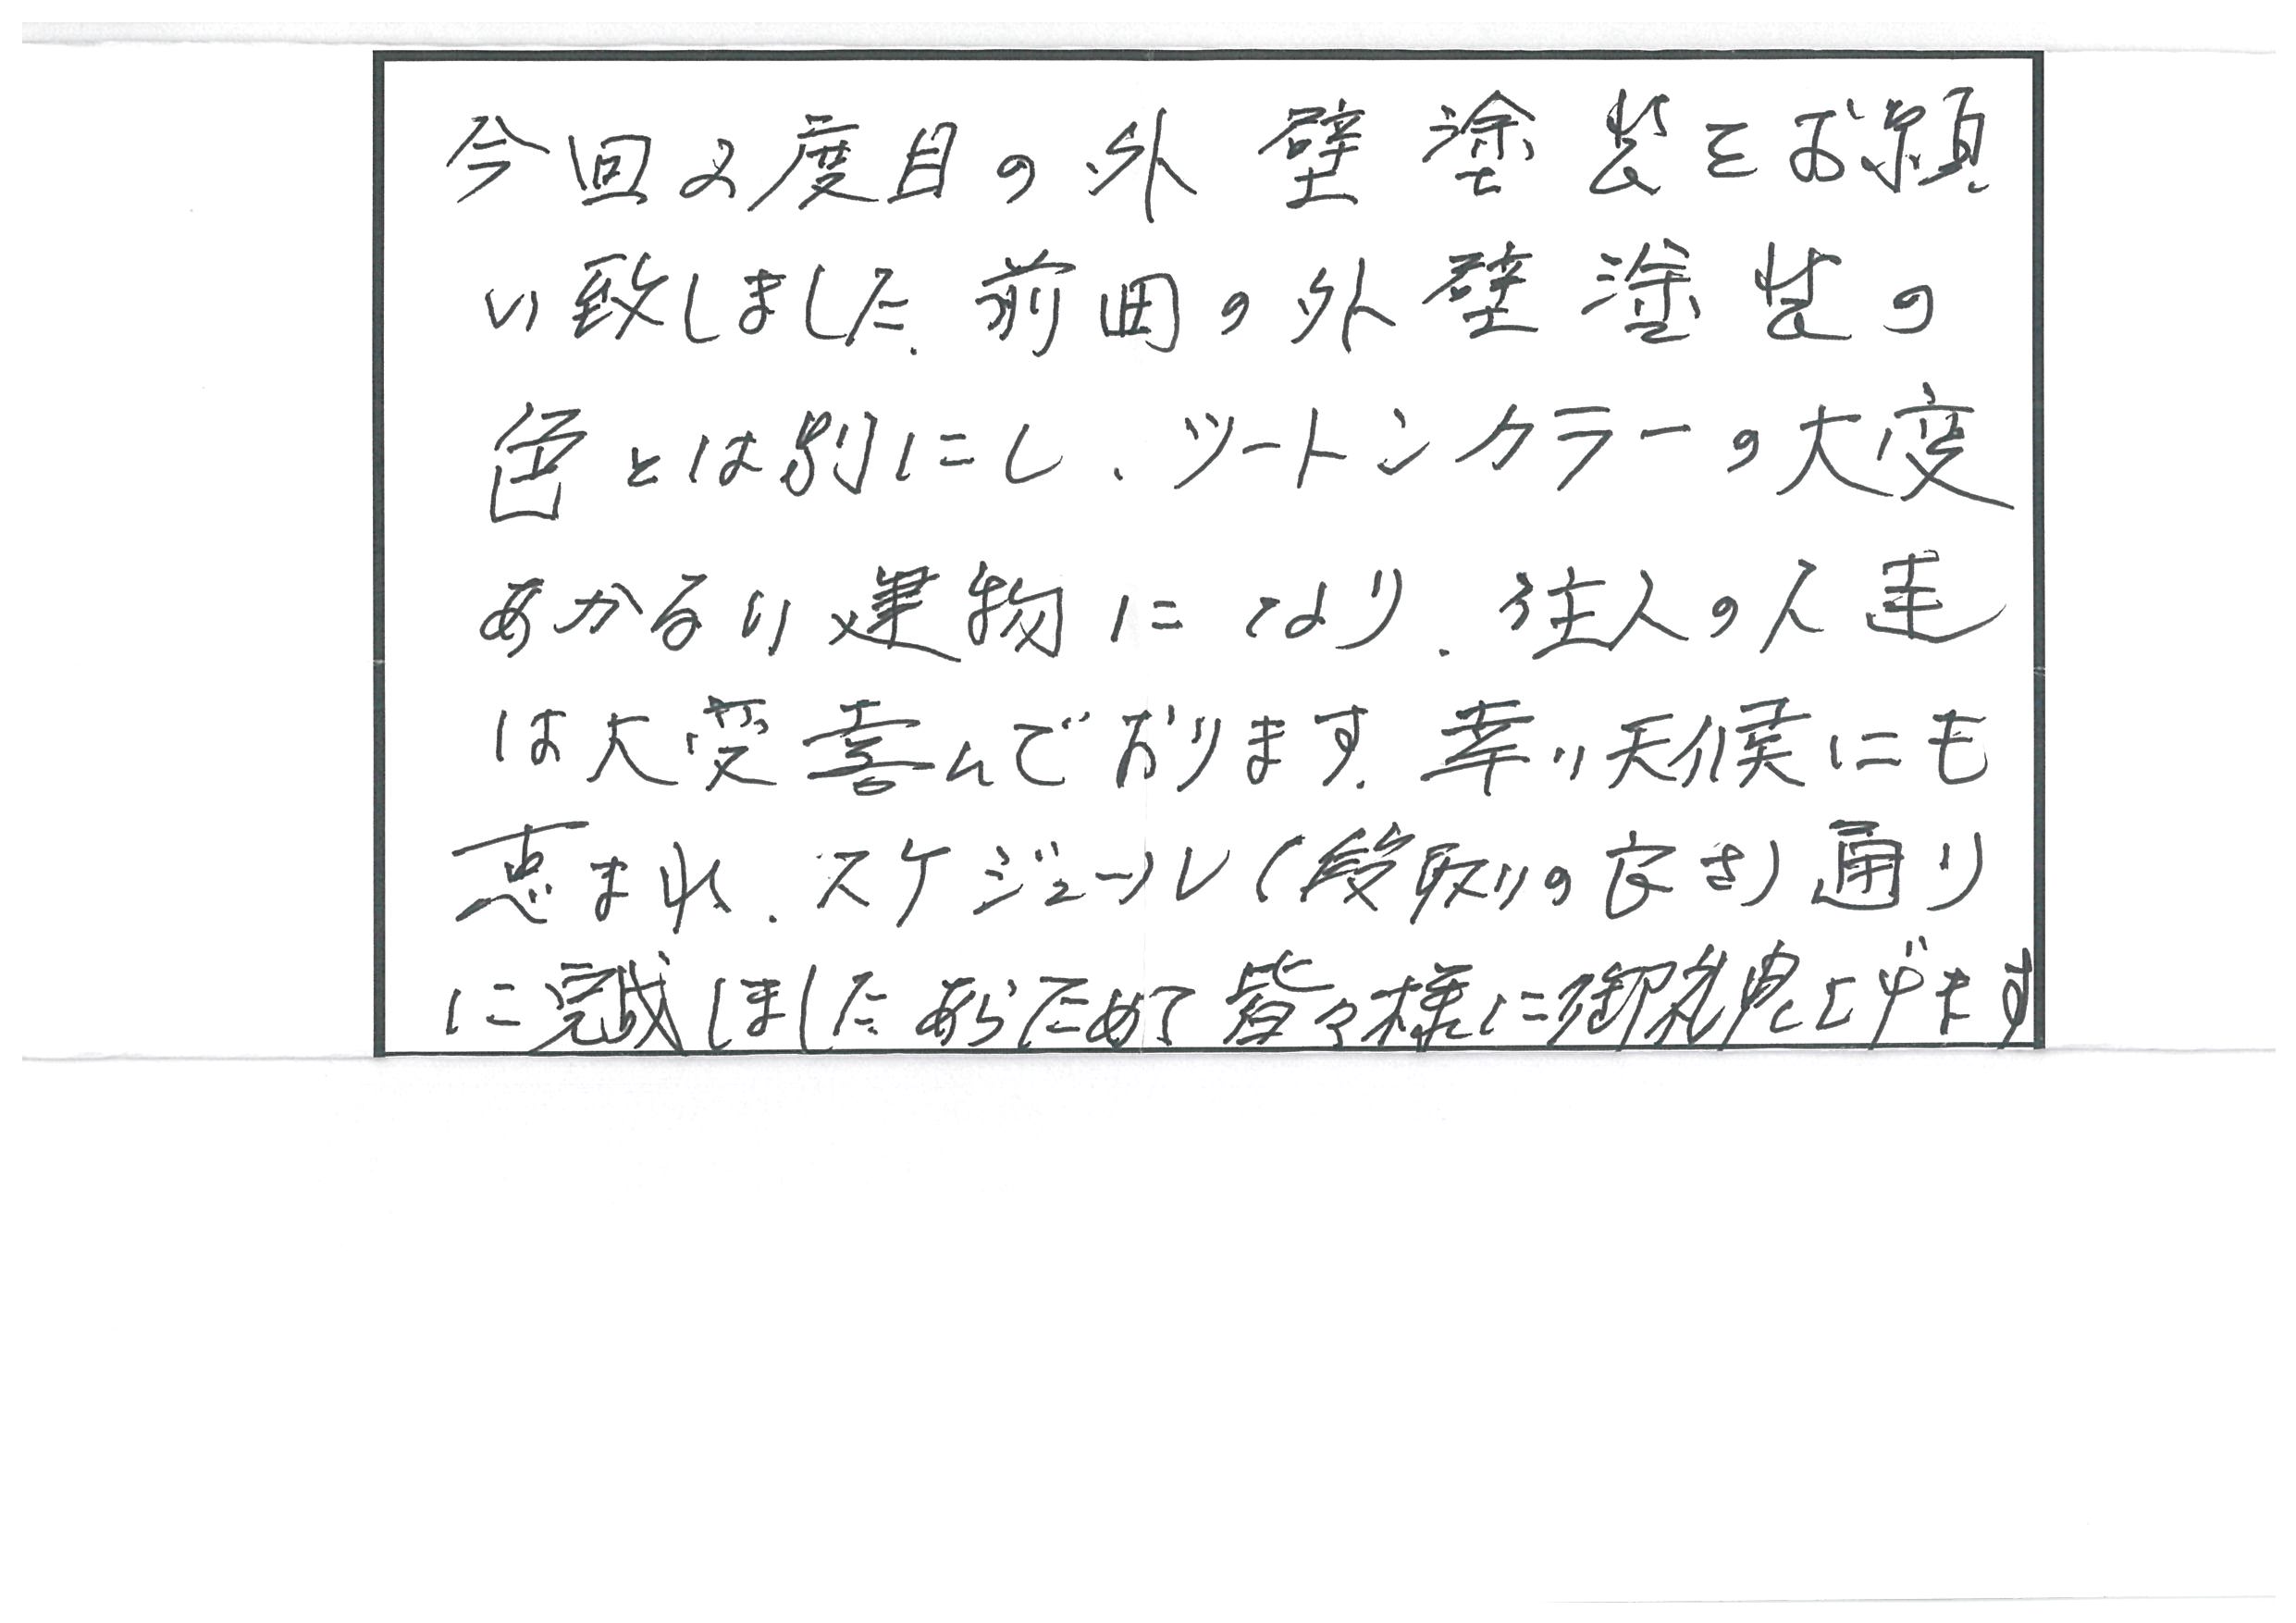 今回2度目の外壁塗装をお願
い致しました。前回の外壁塗装の
色とは別にし、ツートンカラーの大変
あかるい建物になり、住人の人達
は大変喜んでおります。幸い天候にも
恵まれ、スケジュール(段取りの良さ)通り
に完成しました。あらためて皆々様に御礼申し上げます